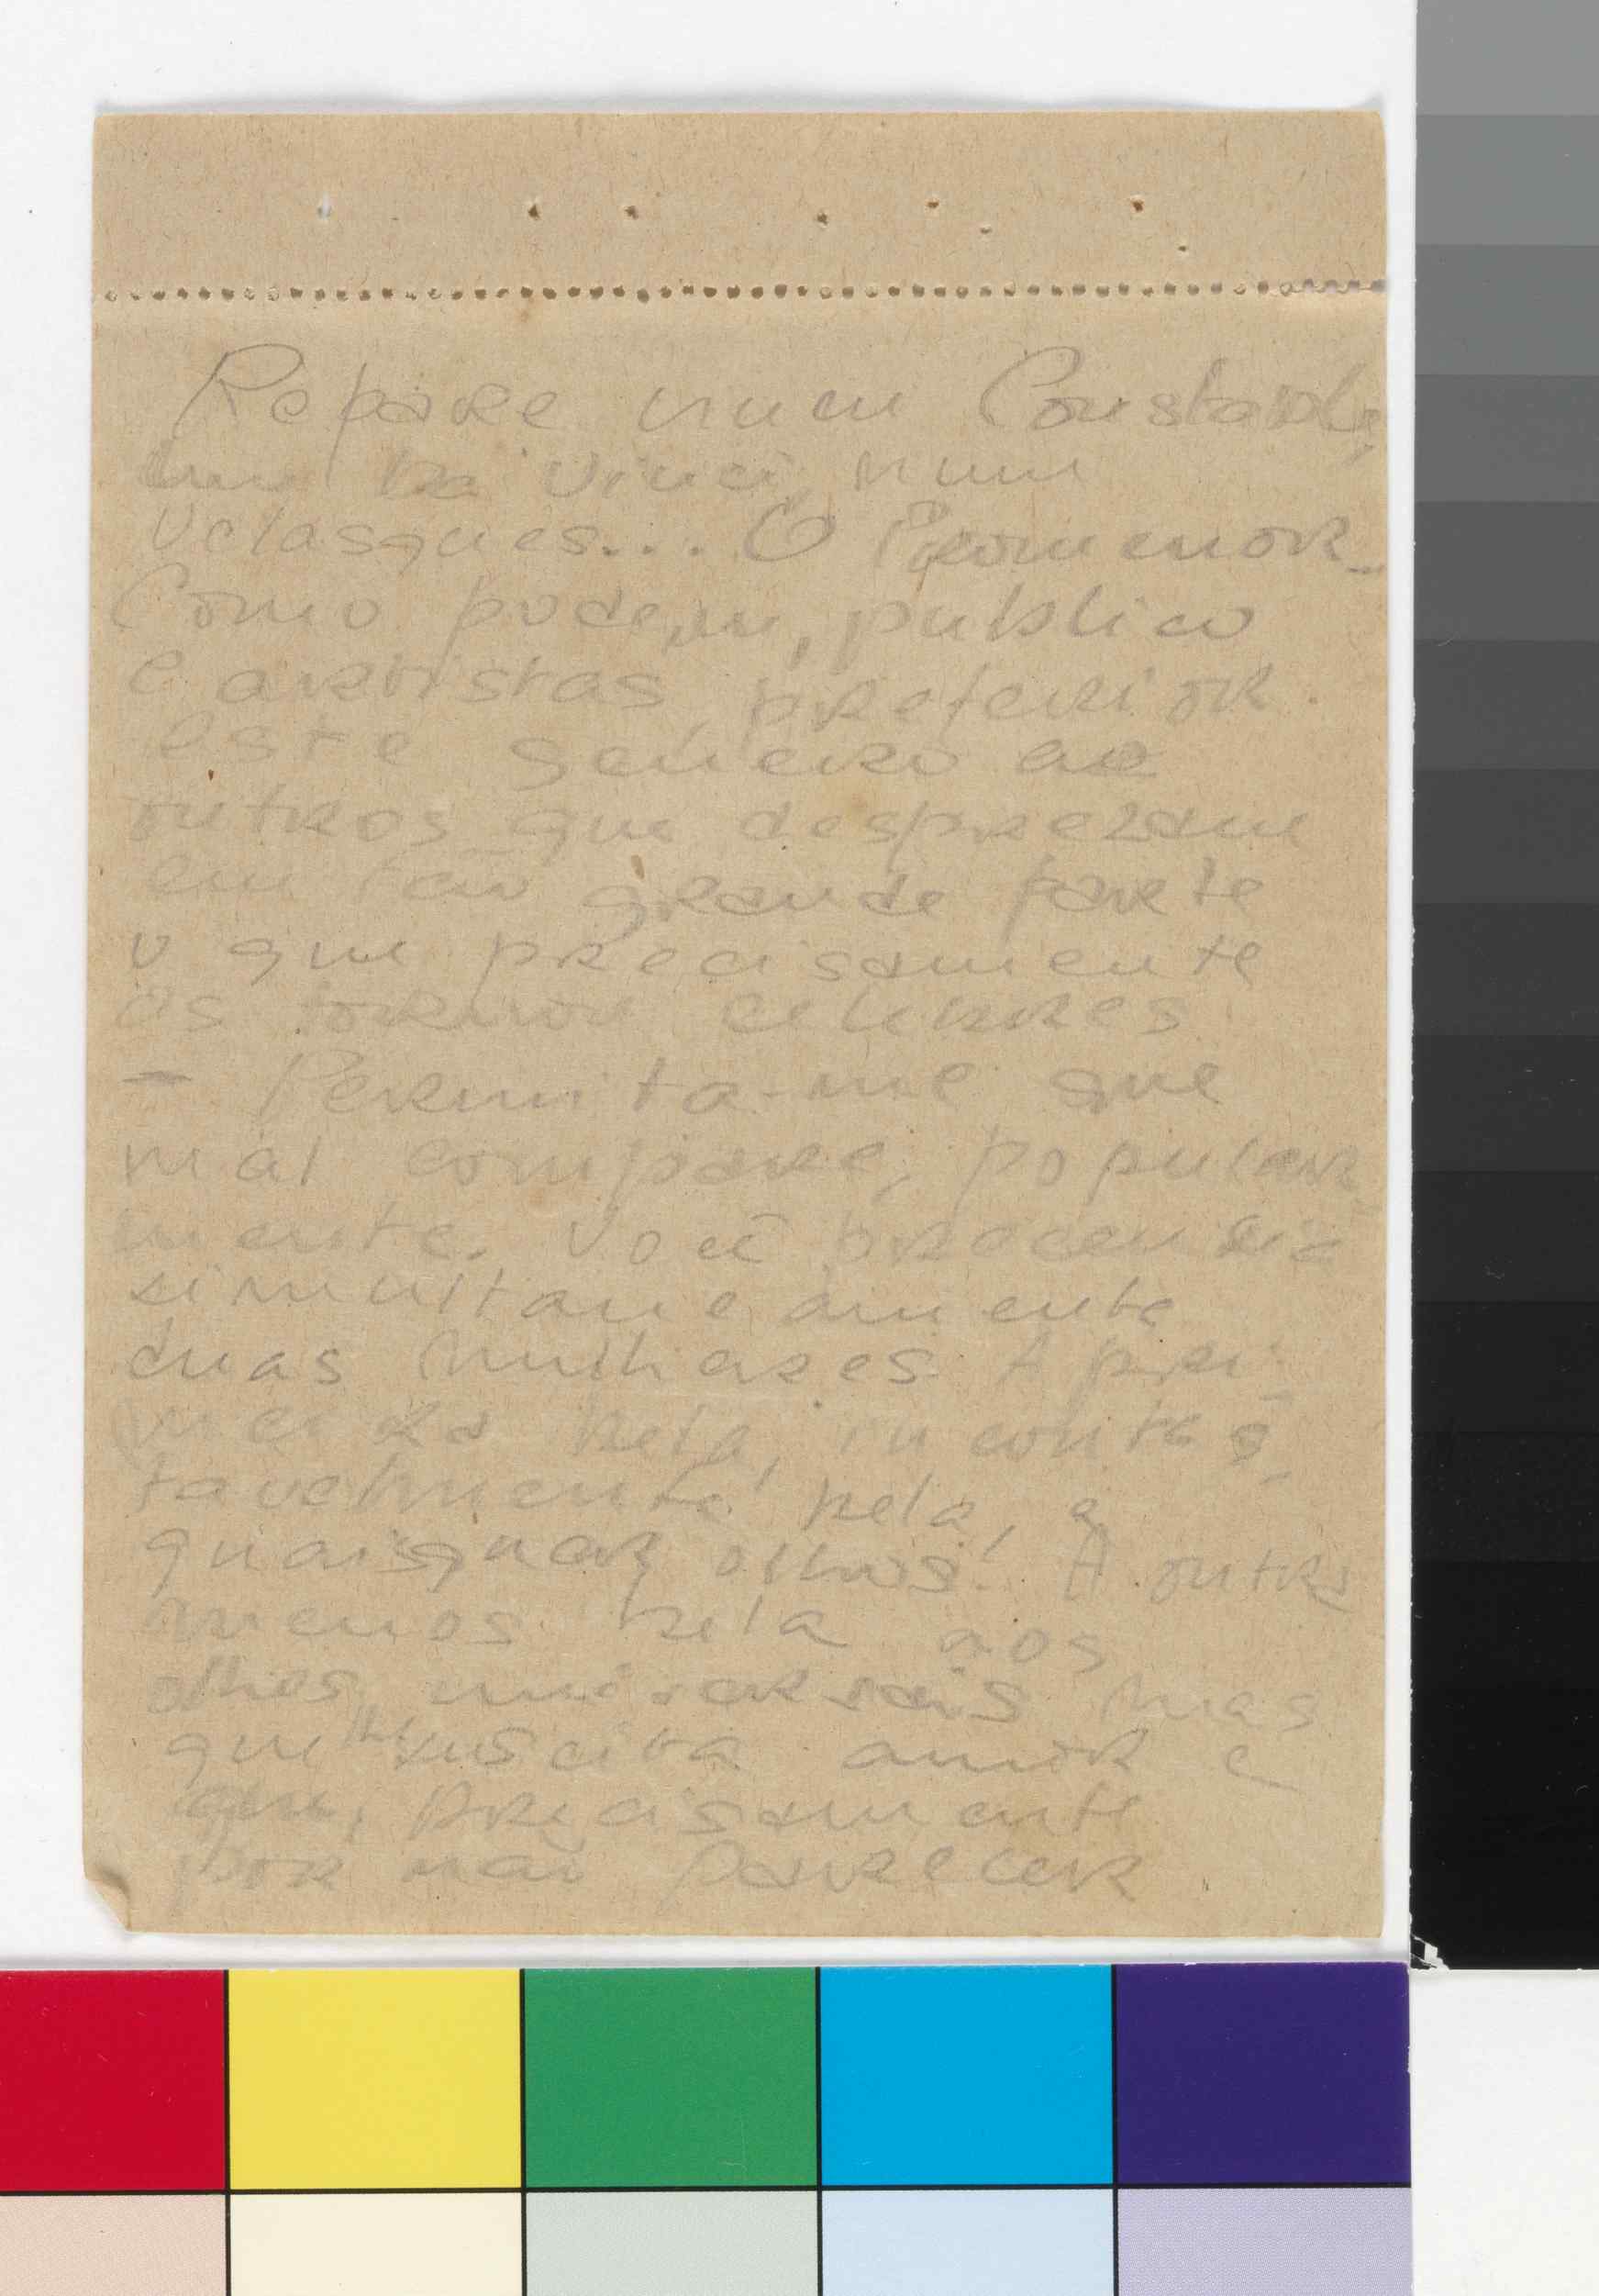 Repare num Constable,
num Da Vinci, num
Velasques... O Pormenor_
Como podem, publico
e artistas, preferior
este genero ao
outros que desprezam
em tão grande parte
o que precisamente
os tornou celebres
– Permita-me que
mal compare, popular
mente. Você
simultaneamente
duas mulheres. A pri-
meira bela, incontes-
tavelmente bela, a
quaisquer olhos. A outra
menos bela aos
olhos universais mas
que lhe suscita amor e
que, precisamente
por não parecer